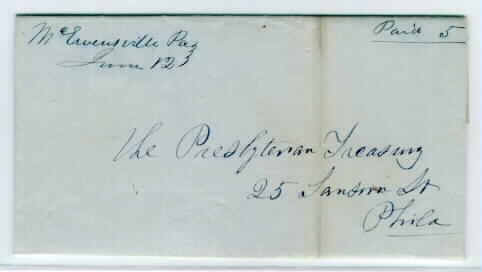 McEwensville Pa
June 12
Paid 5
The Presbyterian Treasury
25 Sansom St
Phila